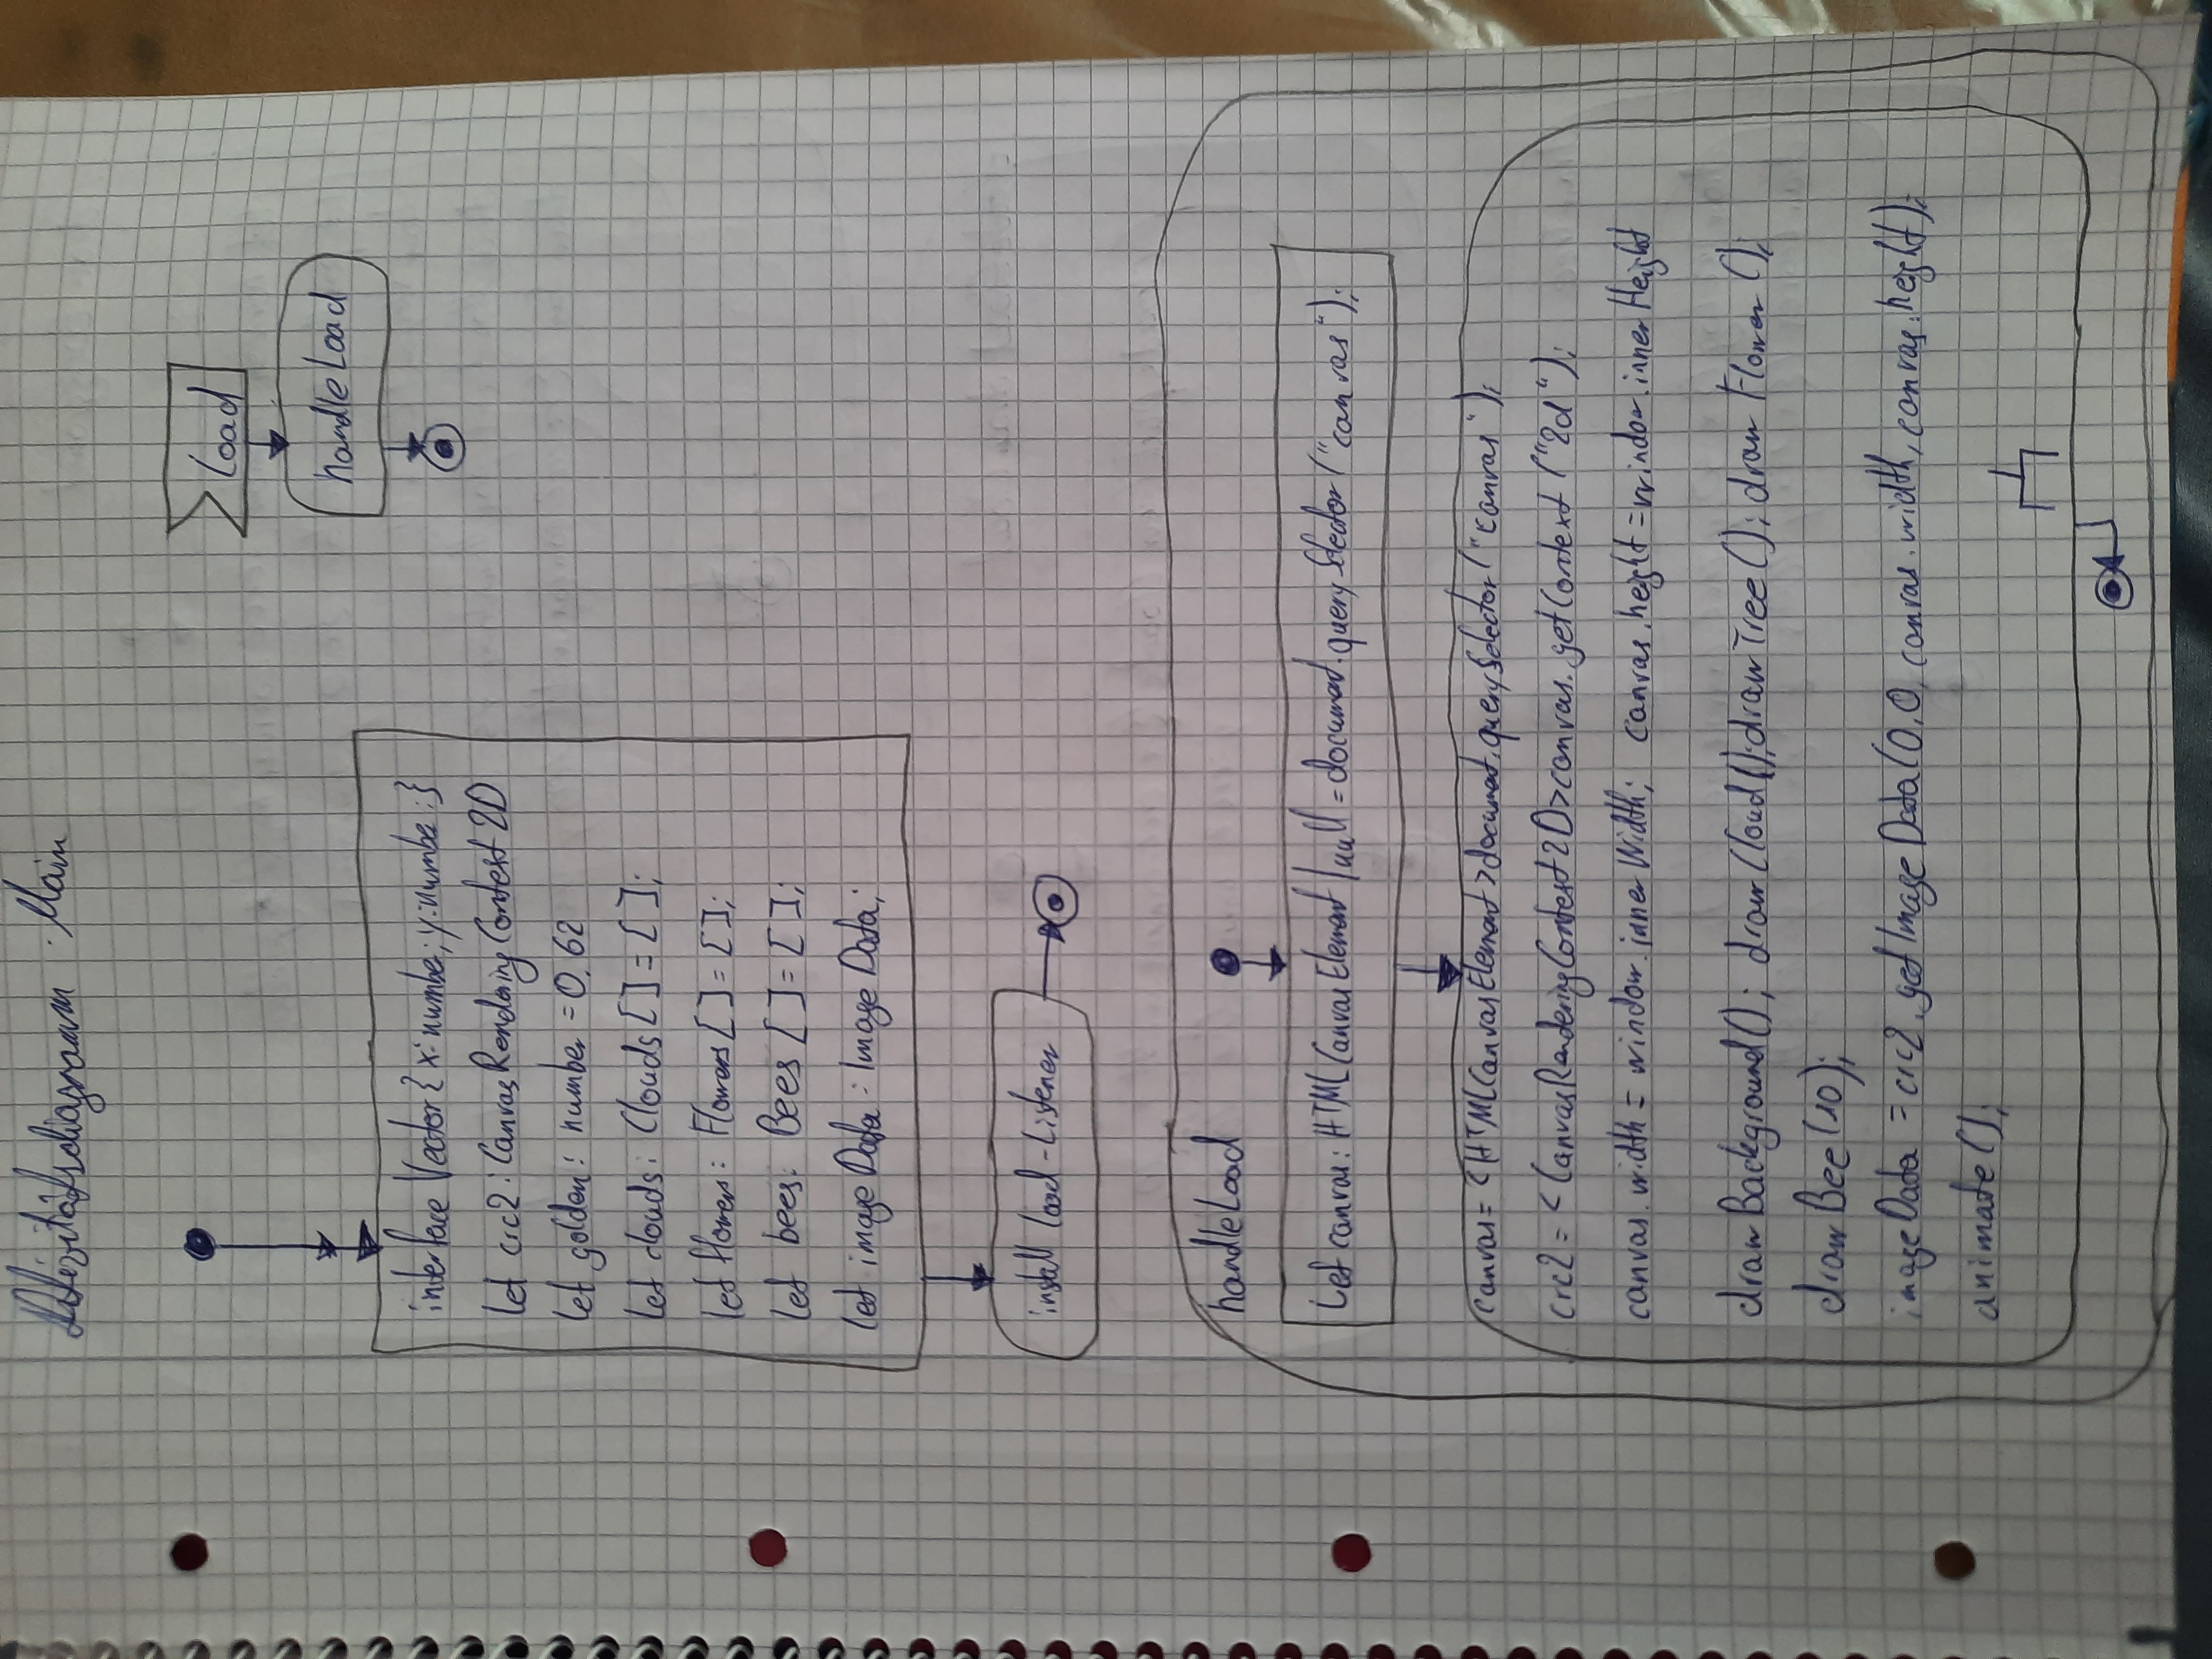 Aktivitätsdiagramm Main
Load
handleLoad
interface Vector{ x: number; y: number; }
let crc2: CanvasRenderingContext2D
let golden: number = 0.62
let clouds: Clouds [] = [];
let flowers: Flowers [] = [];
let bees: Bees [] = [];
let imageData: ImageData;
install load-Listener
handleLoad
Let canvas: HTMLCanvasElement | null = document.querySelector("canvas");
canvas = <HTMLCanvasElement>document.querySelector("canvas");
crc2 = <CanvasRenderingContext2D>canvas.getContext("2d");
canvas.width = window.innerWidth; canvas.height = window.innerHeight
drawBackground(); drawCloud(); drawTree(); drawFlower();
drawBee(10);
imageData = crc2.getImageData(0,0, canvas.width, canvas.height);
animate();